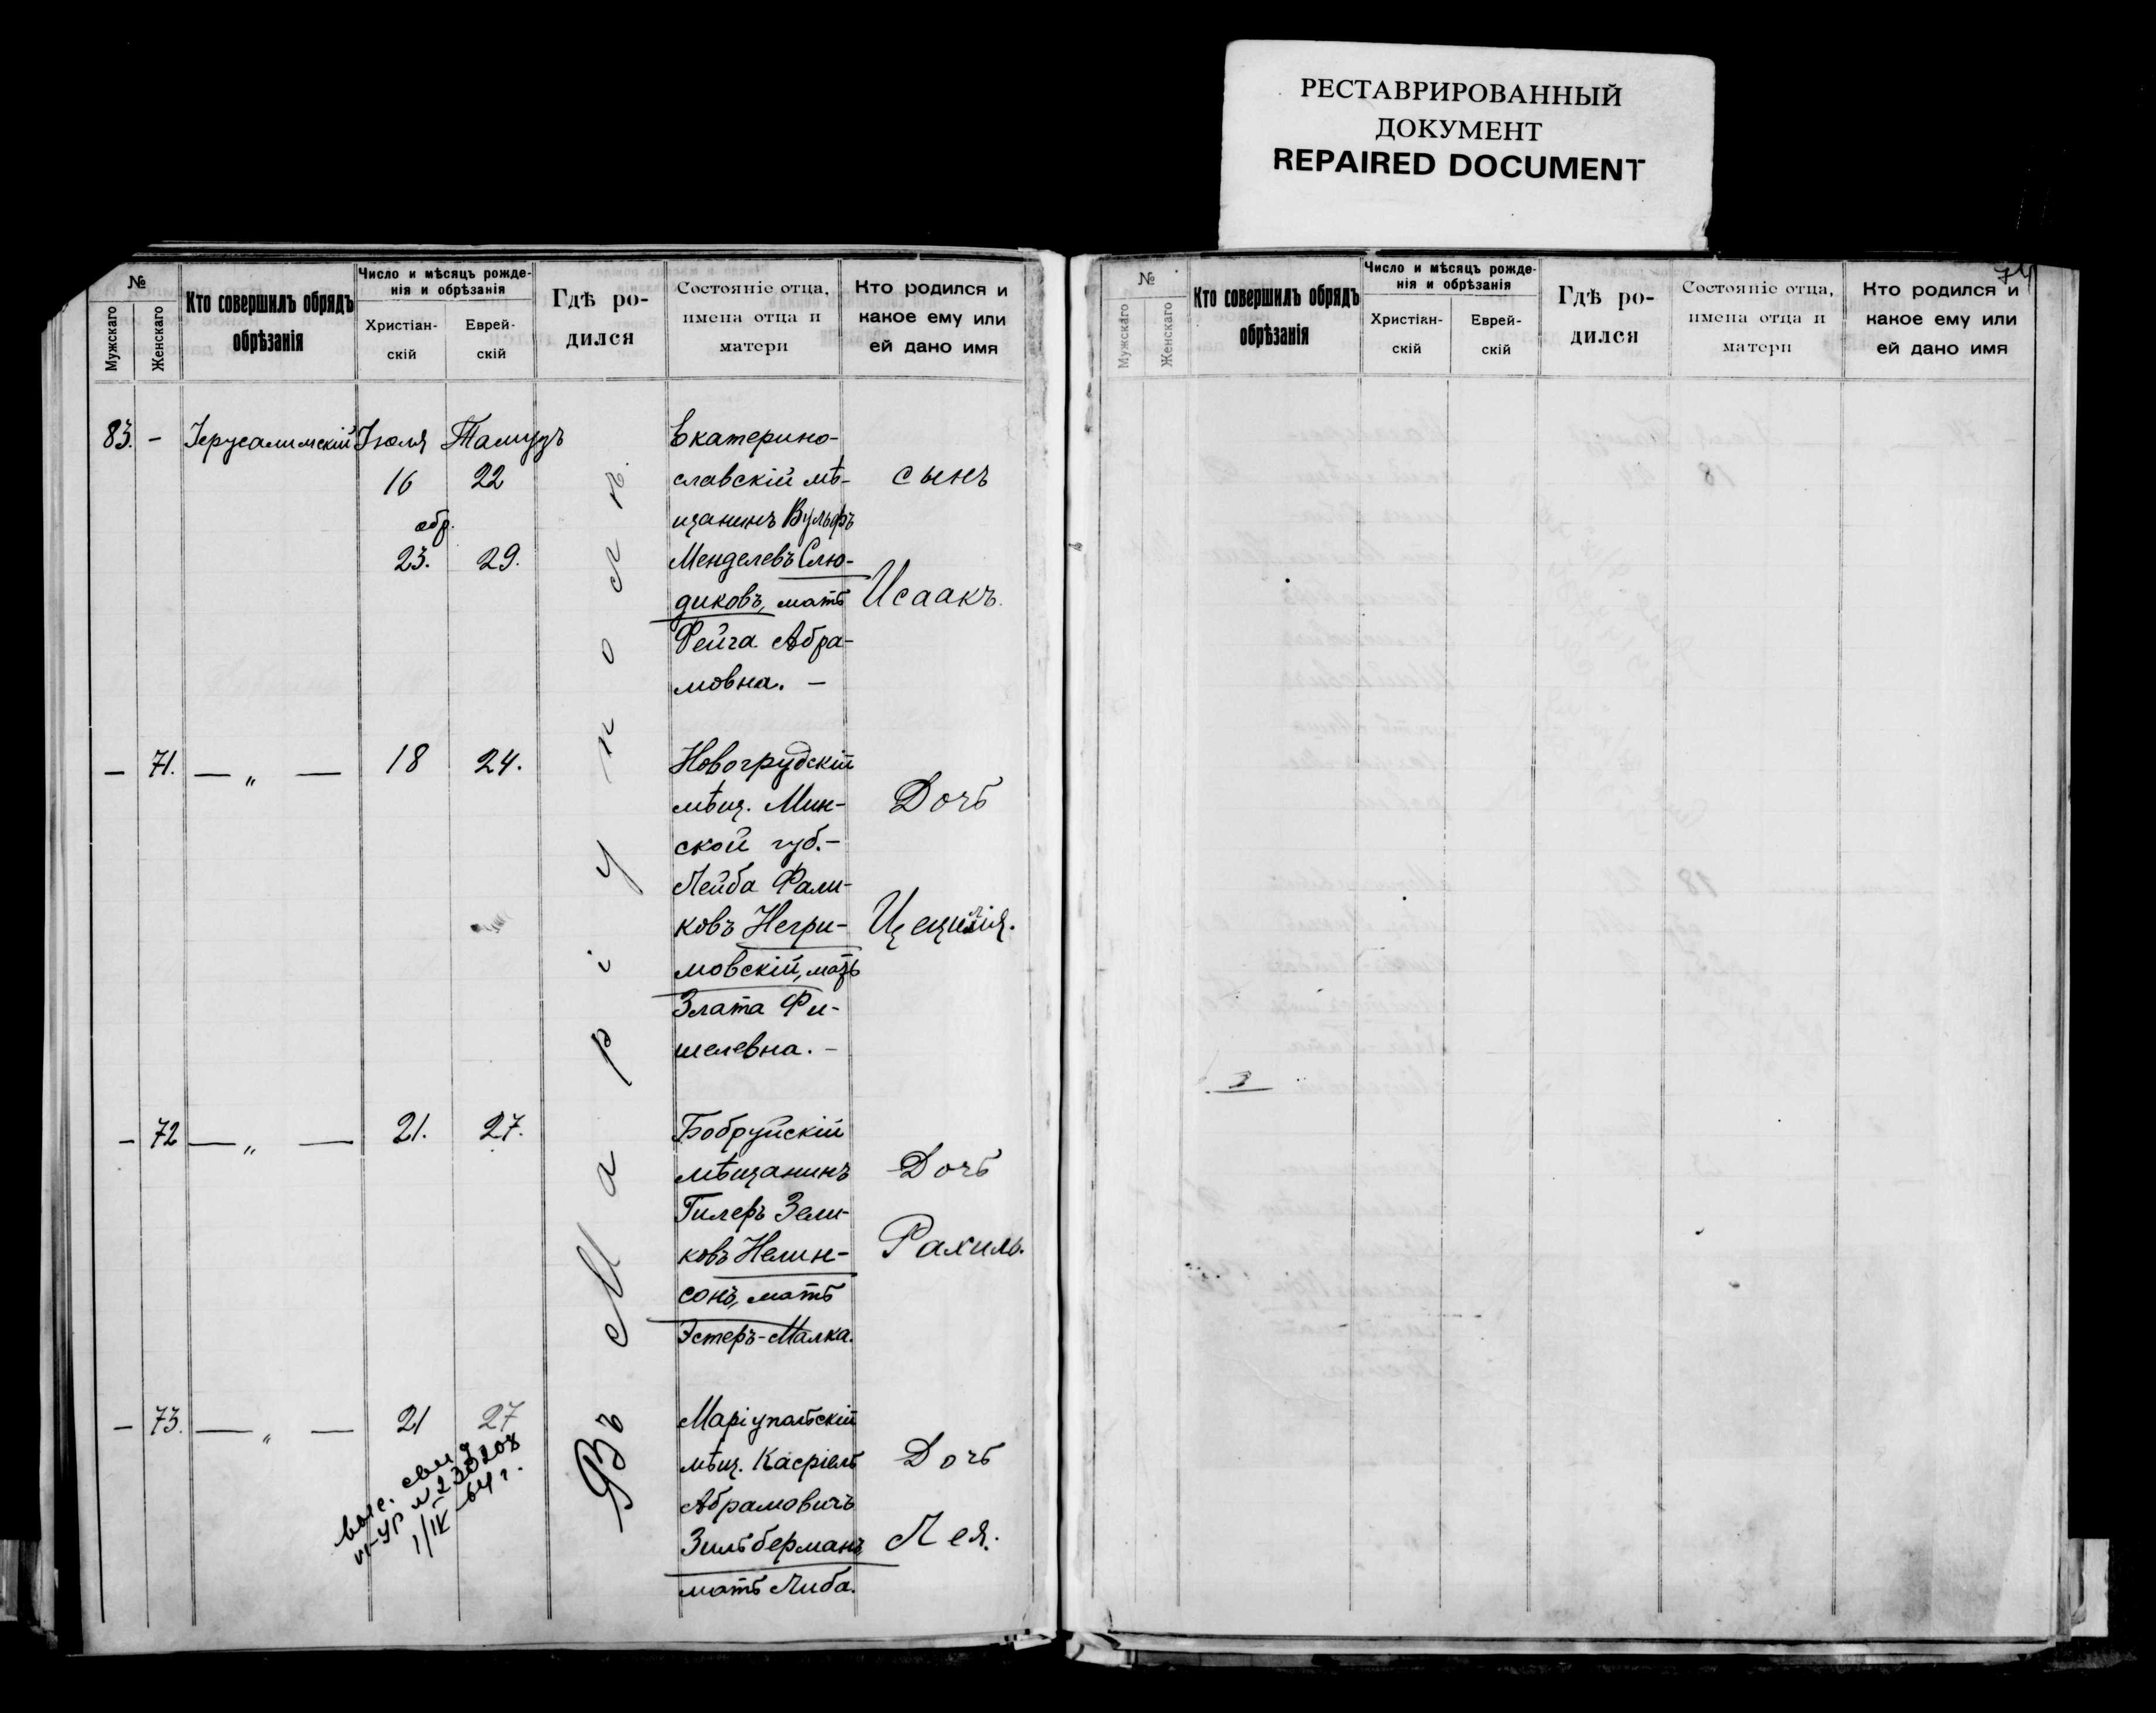 РЕСТАВРИРОВАННЫЙ
ДОКУМЕНТ
REPAIRED DOCUMENT
№
Мужскаго
Женскаго
Кто совершилъ обрядъ
обрѣзанія
Число и мѣсяцъ рожде-
нія и обрѣзанія
Христіан-
скій
Еврей-
скій
Гдѣ ро-
дился
Состояніе отца,
имена отца и
матери
Кто родился и
какое ему или
ей дано имя
83. - Іерусалимскій Іюля Тамузъ
16 22
обр.
23. 29.
Екатерино-
славскій мѣ-
щанинъ Вульфъ
Менделевъ Слю-
диковъ, мать
Фейга Абра-
мовна. -
сынъ
Исаакъ.
— 71. — „ — 18 24.
Новогрудскій
мѣщ. Мин-
ской губ.-
Лейба Фали-
ковъ Негри-
мовскій, мать
Злата Фи-
шелевна. -
Дочь
Цецилія.
- 72 — „ — 21. 27.
Бобруйскій
мѣщанинъ
Гилеръ Зели-
ковъ Нелин-
сонъ, мать
Эстеръ-Малка.
Дочь
Рахиль.
- 73. — „ — 21 27
Маріупольскій
мѣщ. Касріель
Абрамовичъ
Зильберманъ
мать Либа.
Дочь
Лея.
Въ Маріуполѣ.
1/IV-64 г.
№
Мужскаго
Женскаго
Кто совершилъ обрядъ
обрѣзанія
Число и мѣсяцъ рожде-
нія и обрѣзанія
Христіан-
скій
Еврей-
скій
Гдѣ ро-
дился
Состояніе отца,
имена отца и
матери
Кто родился и
какое ему или
ей дано имя